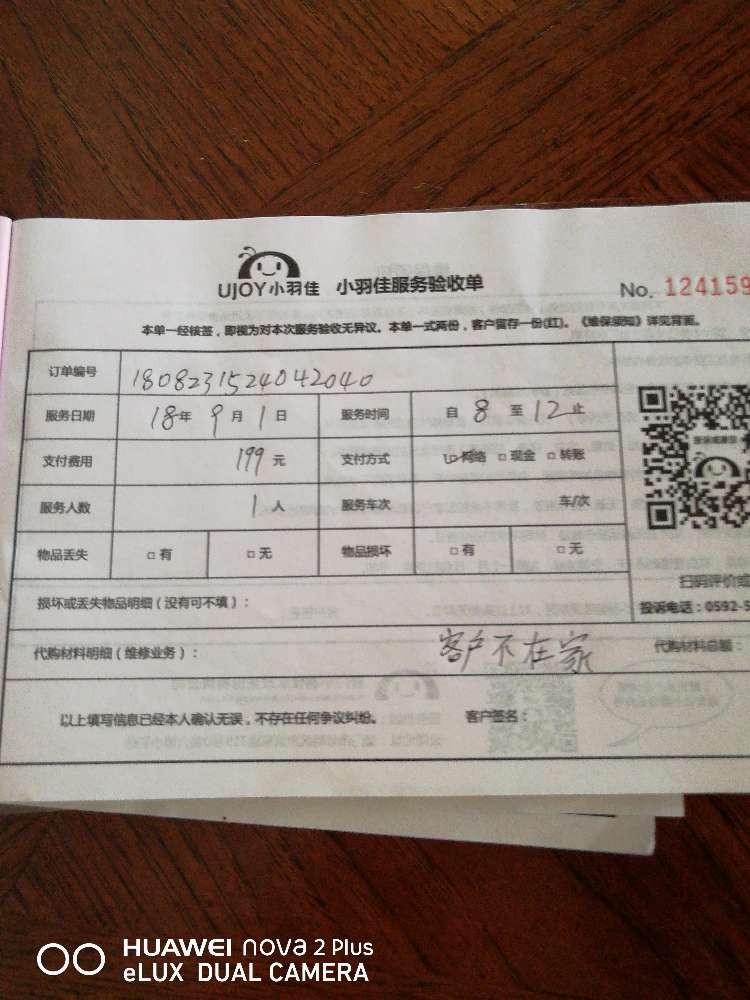 UJOY小羽佳 小羽佳服务验收单 No. 124159
本单一经核签，即视为对本次服务验收无异议。本单一式两份，客户留存一份(红)。《维保须知》详见背面。
订单编号 1808231524042040
服务日期 18年 9月 1日 服务时间 自 8 至 12止
支付费用 199元 支付方式 网络 □现金 □转账
服务人数 1人 服务车次 车/次
物品丢失 □有 □无 物品损坏 □有 □无
扫码评价或
损坏或丢失物品明细（没有可不填）： 投诉电话：0592-5
代购材料明细（维修业务）： 客户不在家 代购材料总额：
以上填写信息已经本人确认无误，不存在任何争议纠纷。 客户签名：
HUAWEI nova 2 Plus
eLUX DUAL CAMERA